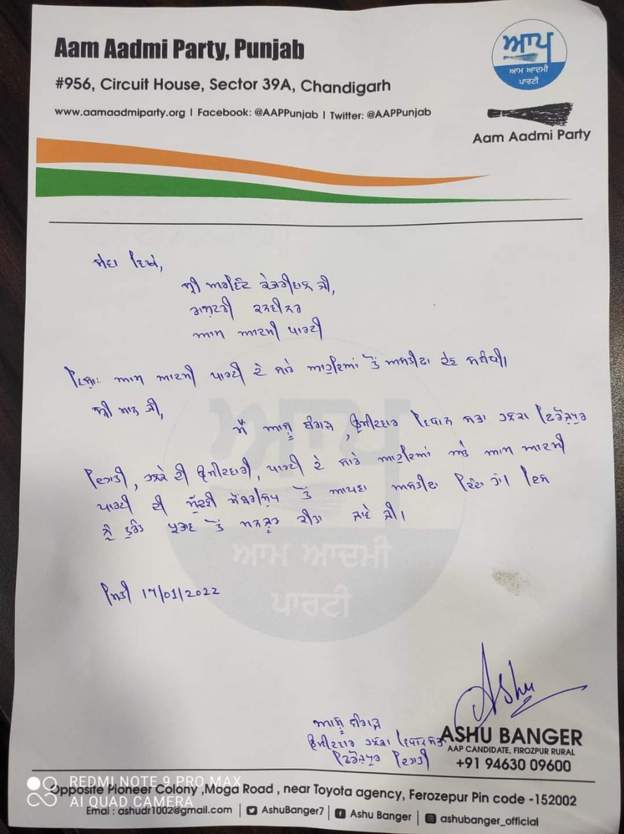 Aam Aadmi Party, Punjab
#956, Circuit House, Sector 39A, Chandigarh
www.aamaadmiparty.org | Facebook: @AAPPunjab | Twitter: @AAPPunjab
ਆਪ
ਆਮ ਆਦਮੀ
ਪਾਰਟੀ
Aam Aadmi Party
ਸੇਵਾ ਵਿਖੇ,
ਸ਼੍ਰੀ ਅਰਵਿੰਦ ਕੇਜਰੀਵਾਲ ਜੀ,
ਰਾਸ਼ਟਰੀ ਕਨਵੀਨਰ
ਆਮ ਆਦਮੀ ਪਾਰਟੀ
ਵਿਸ਼ਾ: ਆਮ ਆਦਮੀ ਪਾਰਟੀ ਦੇ ਸਾਰੇ ਆਹੁਦਿਆਂ ਤੋਂ ਅਸਤੀਫਾ ਦੇਣ ਸਬੰਧੀ।
ਸ਼੍ਰੀ ਮਾਨ ਜੀ,
ਮੈਂ ਆਸ਼ੂ ਬੰਗੜ, ਉਮੀਦਵਾਰ ਵਿਧਾਨ ਸਭਾ ਹਲਕਾ ਫਿਰੋਜ਼ਪੁਰ
ਦਿਹਾਤੀ, ਹਲਕੇ ਦੀ ਉਮੀਦਵਾਰੀ, ਪਾਰਟੀ ਦੇ ਸਾਰੇ ਆਹੁਦਿਆਂ ਅਤੇ ਆਮ ਆਦਮੀ
ਪਾਰਟੀ ਦੀ ਮੁੱਢਲੀ ਮੈਂਬਰਸ਼ਿਪ ਤੋਂ ਆਪਣਾ ਅਸਤੀਫਾ ਦਿੰਦਾ ਹਾਂ। ਇਸ
ਨੂੰ ਤੁਰੰਤ ਤੋਂ ਮਨਜ਼ੂਰ ਕੀਤਾ ਜਾਵੇ ਜੀ।
ਆਪ
ਆਮ ਆਦਮੀ
ਪਾਰਟੀ
ਮਿਤੀ 17/01/2022
Ashu
ਆਸ਼ੂ ਬੰਗੜ
ਉਮੀਦਵਾਰ ਹਲਕਾ ਵਿਧਾਨ ਸਭਾ
ਫਿਰੋਜ਼ਪੁਰ ਦਿਹਾਤੀ
ASHU BANGER
AAP CANDIDATE, FIROZPUR RURAL
+91 94630 09600
REDMI NOTE 9 PRO MAX
AI QUAD CAMERA
Opposite Pioneer Colony ,Moga Road , near Toyota agency, Ferozepur Pin code -152002
Emai : ashudr1002@gmail.com | AshuBanger7 | Ashu Banger | ashubanger_official